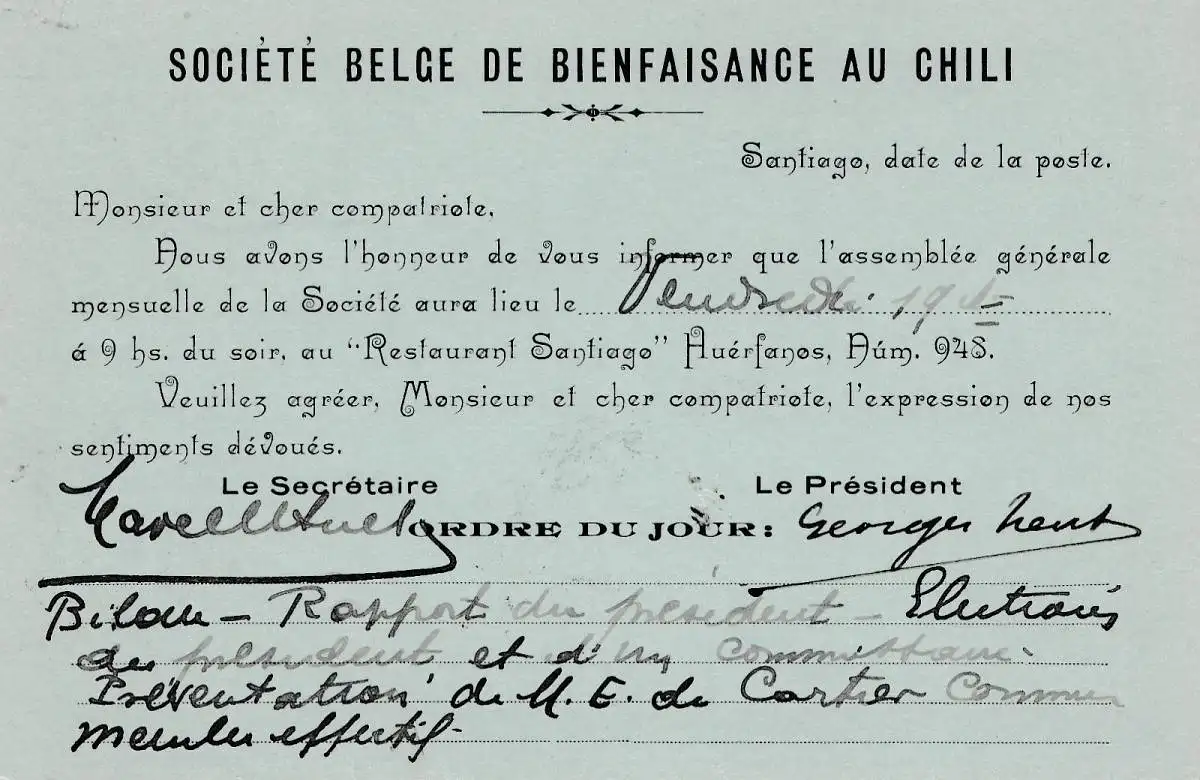 SOCIÉTÉ BELGE DE BIENFAISANCE AU CHILI
Santiago, date de la poste.
Monsieur et cher compatriote,
Nous avons l'honneur de vous informer que l'assemblée générale
mensuelle de la Société aura lieu le Vendredi 19
á 9 hs. du soir, au "Restaurant Santiago" Huérfanos, Núm. 948.
Veuillez agréer, Monsieur et cher compatriote, l'expression de nos
sentiments dévoués.
Le Secrétaire Le Président
ORDRE DU JOUR: Georges
Bilan - Rapport du président - Elections
du président et d'un commissaire.
Présentation de M. E. de Cartier comme
membre effectif-